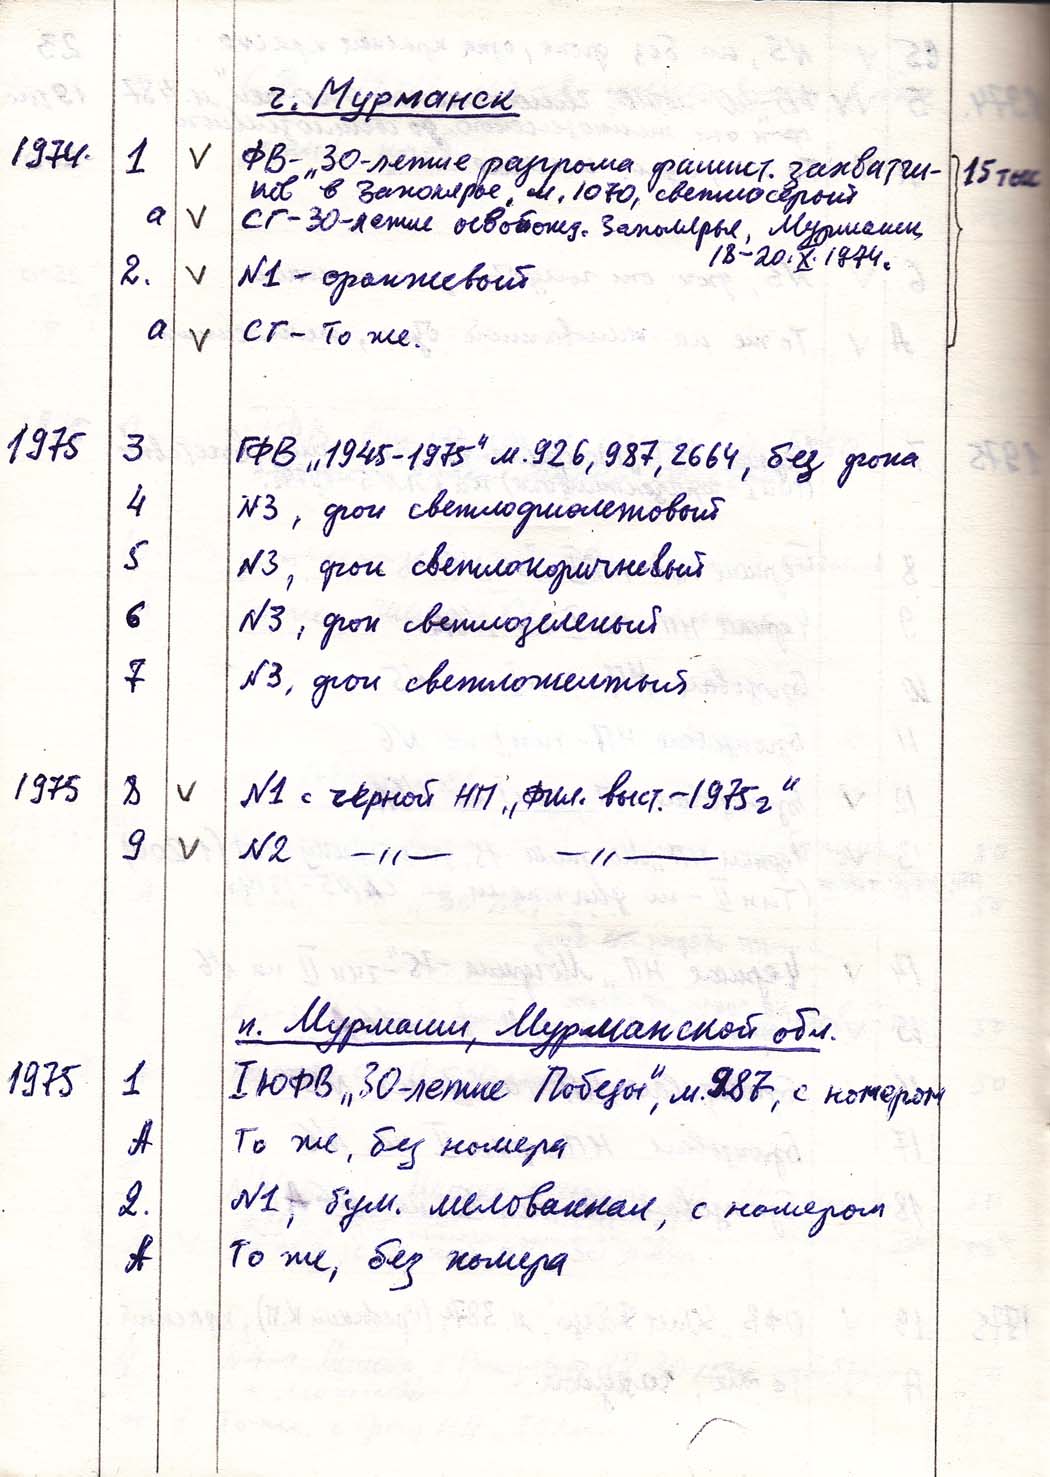 г. Мурманск
1974. 1 V ФВ-„30-летие разгрома фашист. захватчи- 15 тыс
ков в Заполярье, м. 1070, светлосерый
а V СГ-30-летие освобожд. Заполярья, Мурманск
18-20.X.1974.
2. V N1 - оранжевый
а V СГ- То же.
1975 3 ГФВ „1945-1975" м. 926, 987, 2664, без фона
4 N3, фон светлофиолетовый
5 N3, фон светлокоричневый
6 N3, фон светлозеленый
7 N3, фон светложелтый
1975 8 V N1 с черной НП „Фил. выст. - 1975г"
9 V N2 —"— —"—
п. Мурмаши, Мурманской обл.
1975 1 I ЮФВ „30-летие Победы", м. 987, с номером
А То же, без номера
2. N1, бум. мелованная, с номером
А То же, без номера